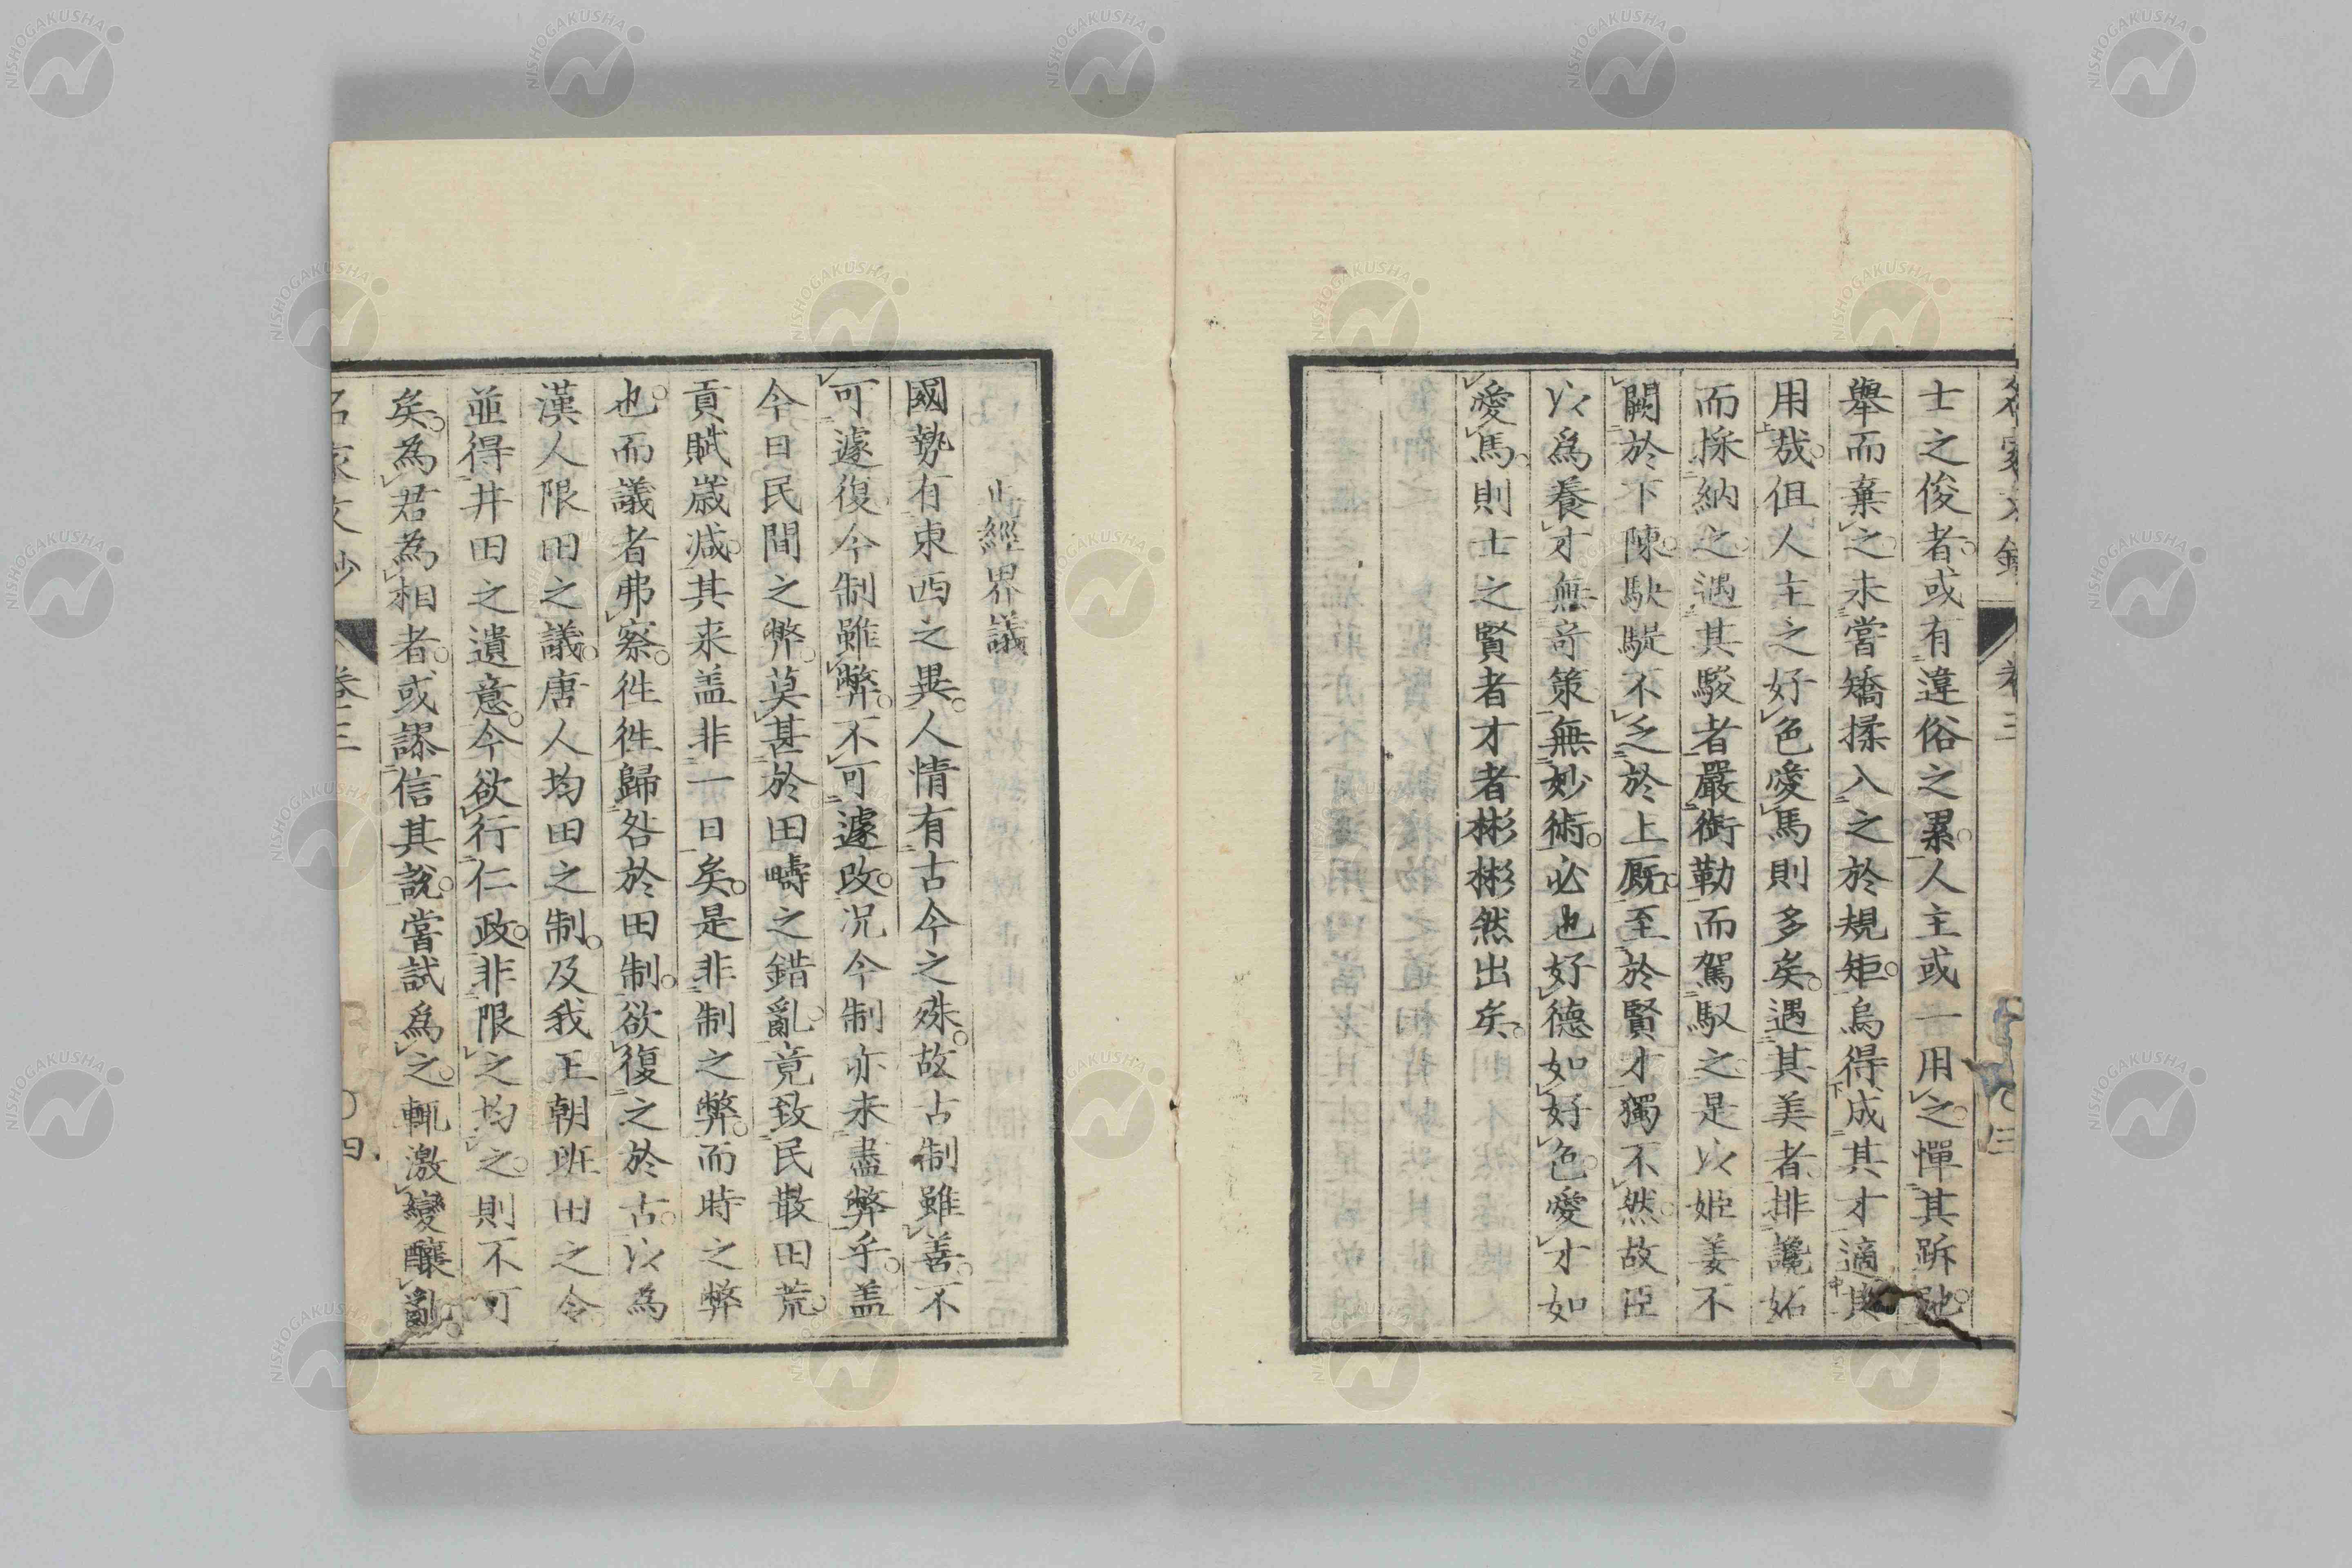 士之俊者。或有違俗之累。人主或一用之。憚其跅弛。
舉而棄之。未嘗矯揉入之於規矩。烏得成其才適其
用哉。但人主之好色愛馬則多矣。遇其美者。排讒妬
而採納之。遇其駿者嚴銜勒而駕馭之。是以姬姜不
闕於下陳。駃騠不乏於上厩。至於賢才獨不然。故臣
以為養才無奇策無妙術。必也好德如好色。愛才如
愛馬。則士之賢者才者彬彬然出矣。
正經界議
國勢有東西之異。人情有古今之殊。故古制雖善。不
可遽復今制雖弊。不可遽改。况今制亦未盡弊乎。盖
今日民間之弊。莫甚於田疇之錯亂。竟致民散田荒。
貢賦歲減。其来盖非一日矣。是非制之弊。而時之弊
也。而議者弗察。徃徃歸咎於田制。欲復之於古。以為
漢人限田之議。唐人均田之制。及我王朝班田之令。
並得井田之遺意。今欲行仁政。非限之均之。則不可
矣。為君為相者。或謬信其說。嘗試為之。輒激變釀亂。
名家文抄 卷三 〇四